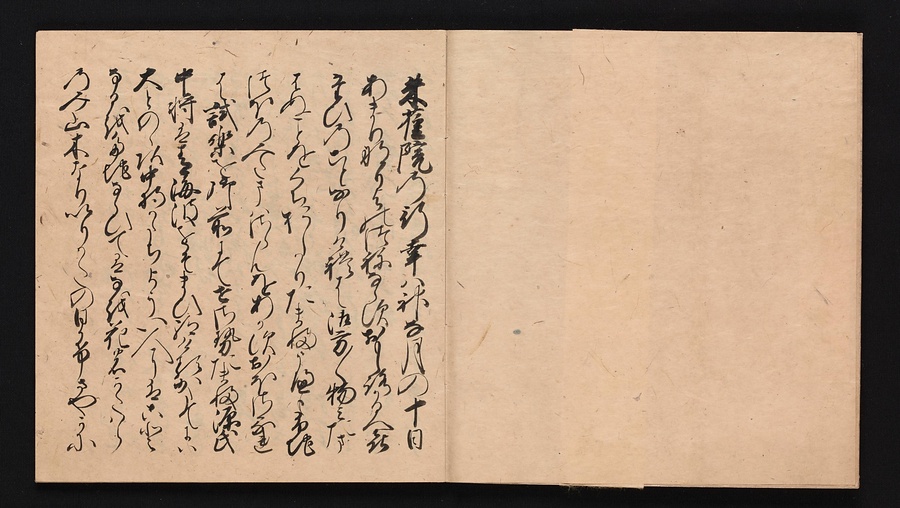 朱雀院の行幸は神な月の十日
あまりなりよのつねならすおもしろかるへき
たひのことなりけれは御方〱物みたま
はぬことをくちおしかりたまふうへもふち
つほのみたまはさらんをあかすおほさるれ
は試楽を御前にてせさせたまふ源氏
中将は青海波をそまひ給けるかたてには
大とのゝ頭中将かたちようい人にはこと
なるをたちならひてはなを花のかたはら
のみ山木なりいりかたの日かけさやかに